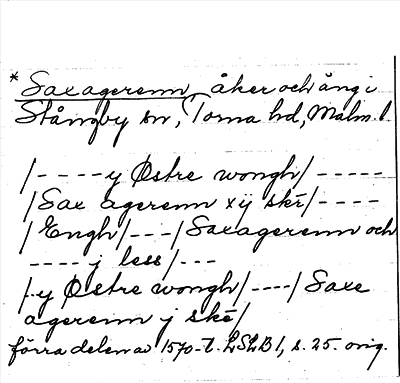 * Saxagerenn, åker och äng i
Stångby sn, Torna hd, Malm. l.
/----y Østre wongh/-----
/Sax agerenn xij skr/----
/Engh/---/Saxagerenn och
----j less/---
/-y Østre wongh/----/Saxe
agerenn j skr/
förra delen av 1570-t. LSLB 1, s. 25. orig.